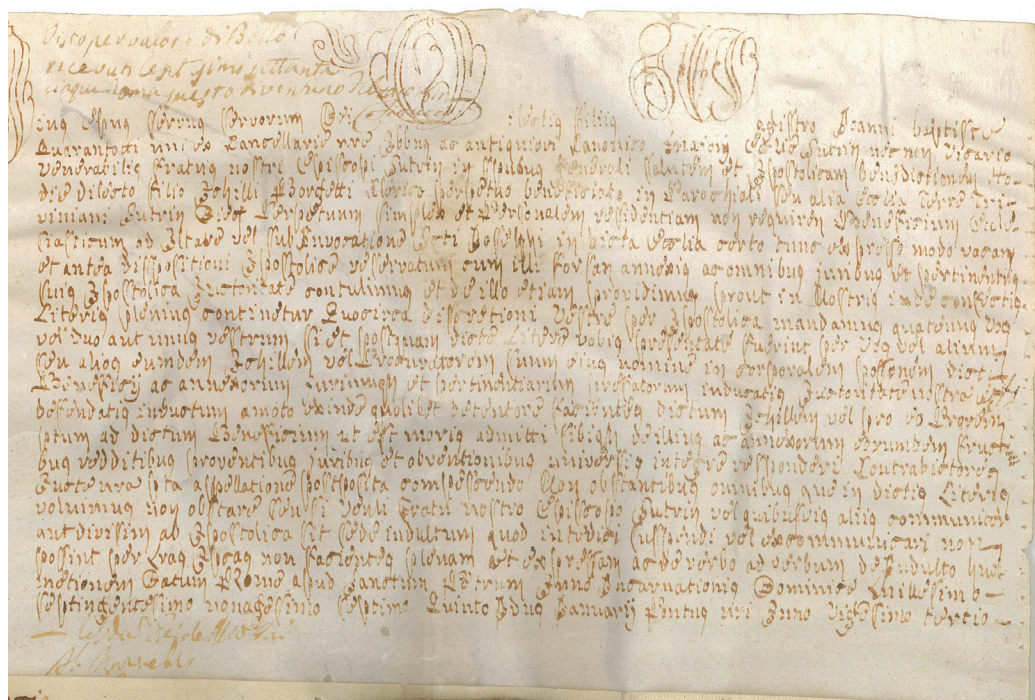 Visto per valore di Bollo
cinque
ius Epus Servus Servorum Dei ilectis filiis agistro Joanni baptiste
Quarantoti uni ex Cancellarie nre Abbus ac antiquiori Canonico Ecclie Sutrin nec non Vicario
Venerabilis fratris nostri Episcopi Sutrin in spualibus Generali Salutem et Apostolicam benedictionem Ho-
die dilecto filio Achilli Borgetti Clerico perpetuo beneficiato in Parochiali seu alia Ecclia Terre Tri-
viniani Sutrin Dioc Perpetuum simplex et Personalem residentiam non requirens Beneficium Eccle-
siasticum ad Altare vel sub Invocatione Scti Josephi in dicta Ecclia certo tunc expresso modo vacan
et antea dispositioni Apostolice reservatum cum illi forsan annexis ac omnibus juribus et pertinentiis
suis Apostolica Auctoritate contulimus et de illo etiam providimus prout in Nostris inde confectis
Literis plenius continetur Quocirca discretioni Vestre per Apostolica mandamus quatenus Vos
vel duo aut unus vestrum si et postquam dicte Litere vobis presentate fuerint per Vos vel alium
seu alios eumdem Achillem vel Procuratorem suum eius nomine in corporalem possonem dict
Beneficij ac annexorum Juriumq et pertinentiarum prefatorum inducatis Auctoritate nostra et
deffendatis inductum amoto exinde quolibet detentore facientes dictum Achillem vel pro eo Procrem
ptum ad dictum Beneficium ut est moris admitti sibiq de illius ac annexorum eorumdem fructi-
bus redditibus proventibus juribus et obventionibus universis integre responderi Contradictores
Aucte nra pta appellatione postposita compescendo Non obstantibus omnibus que in dictis Literis
voluimus non obstare seu si Venli fratri nostro Episcopo Sutrin vel quibusvis aliis communiter
aut divisim ab Apostolica sit sede indultum quod interdici suspendi vel excommunicari non
possint per Lras Apcas non facientes plenam et expressam ac de verbo ad verbum de Indulto hu-
mentionem Datum Rome apud Sanctum Petrum Anno Incarnationis Dominice Millesimo
septingentesimo nonagesimo septimo Quinto Idus Januarij Pontus nri Anno Vigesimo tertio